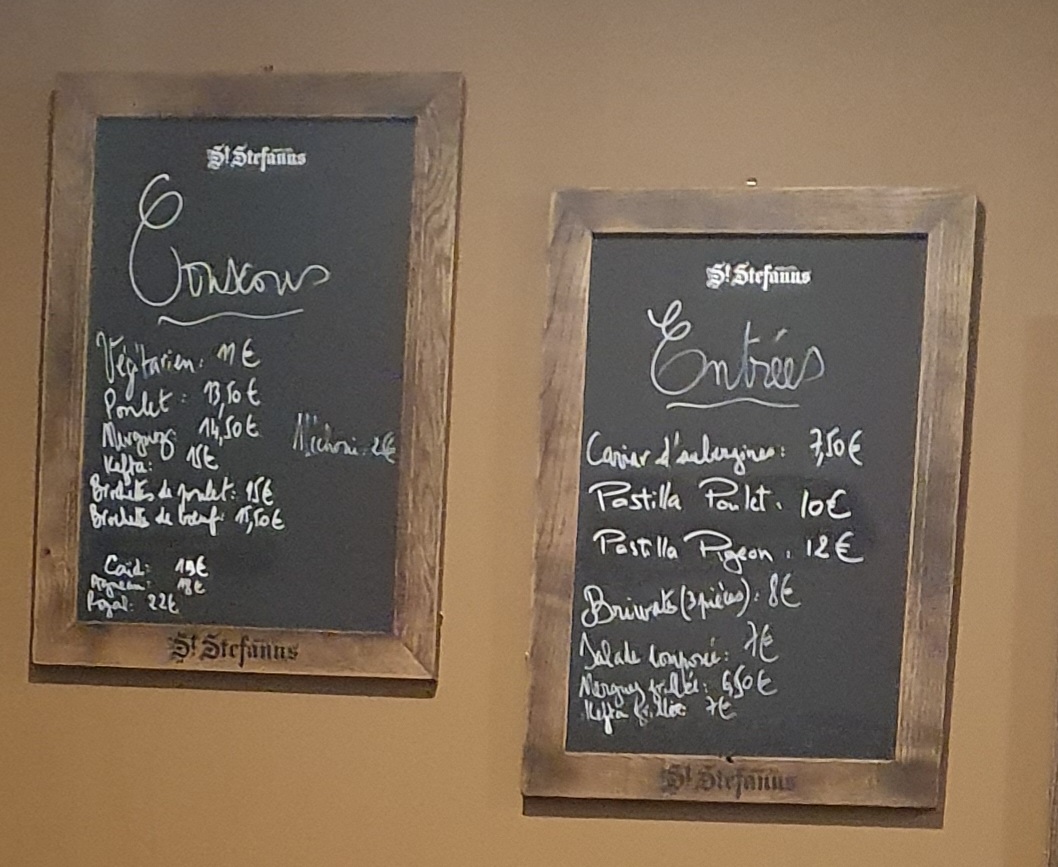 St Stefanus
Couscous
Végétarien: 11€
Poulet: 13,50€
Merguez: 14,50€
Méchoui: 2€
Kefta: 15€
Brochettes de poulet: 15€
Brochette de bœuf: 15,50€
Caïd: 19€
Agneau: 18€
Royal: 22€
St Stefanus
St Stefanus
Entrées
Caviar d'aubergines: 7,50€
Pastilla Poulet. 10€
Pastilla Pigeon. 12€
Briwats (3 pièces): 8€
Salade composée: 7€
Merguez grillée: 6,50€
Kefta grillée: 7€
St Stefanus